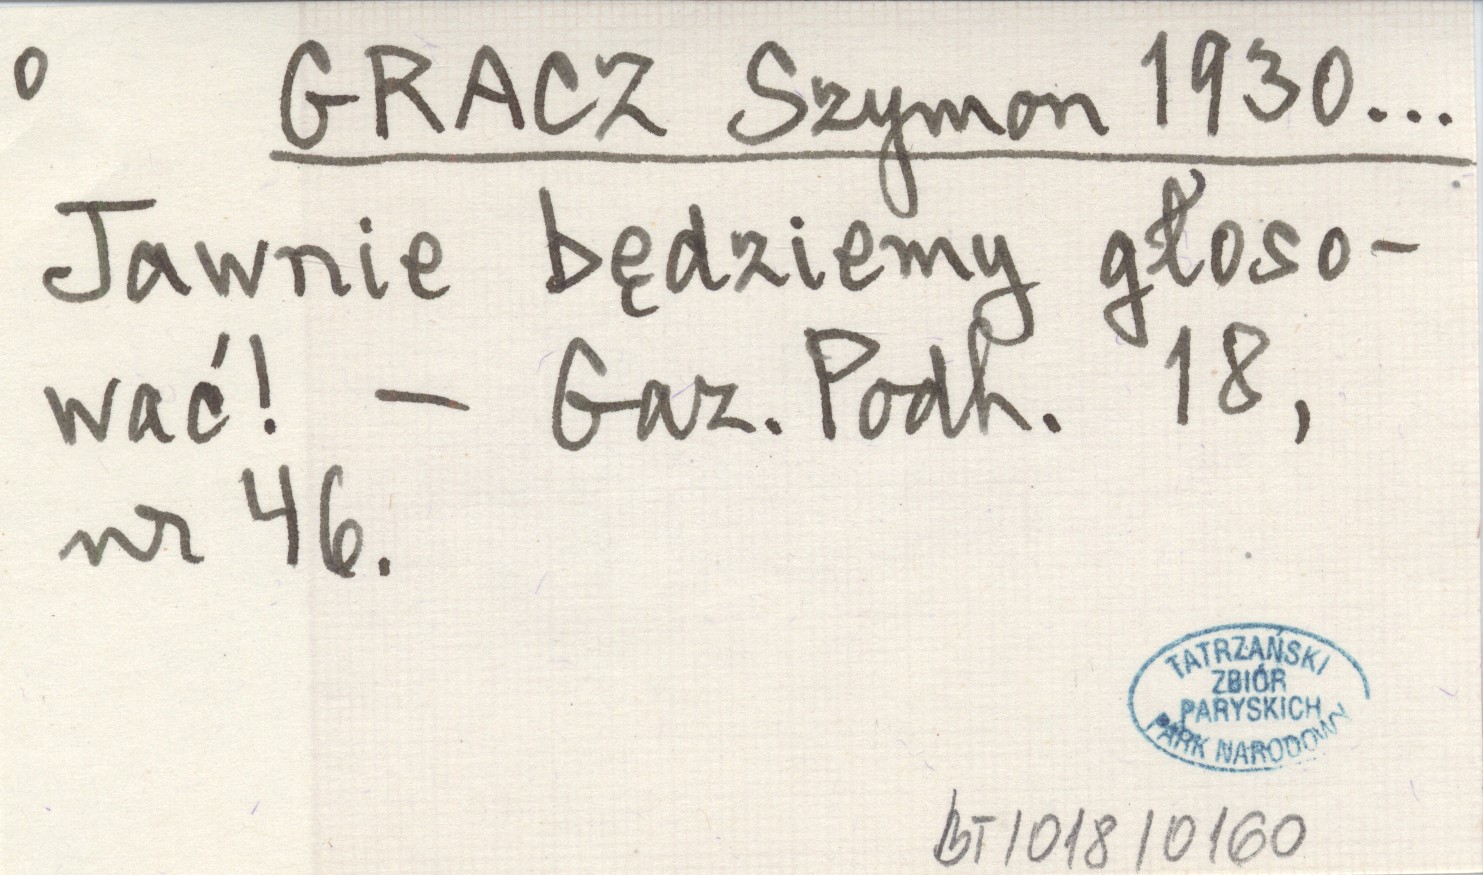 o GRACZ Szymon 1930...
Jawnie będziemy głoso-
wać! — Gaz. Podh. 18,
nr 46.
TATRZAŃSKI
ZBIÓR
PARYSKICH
PARK NARODOWY
BT/018/0160